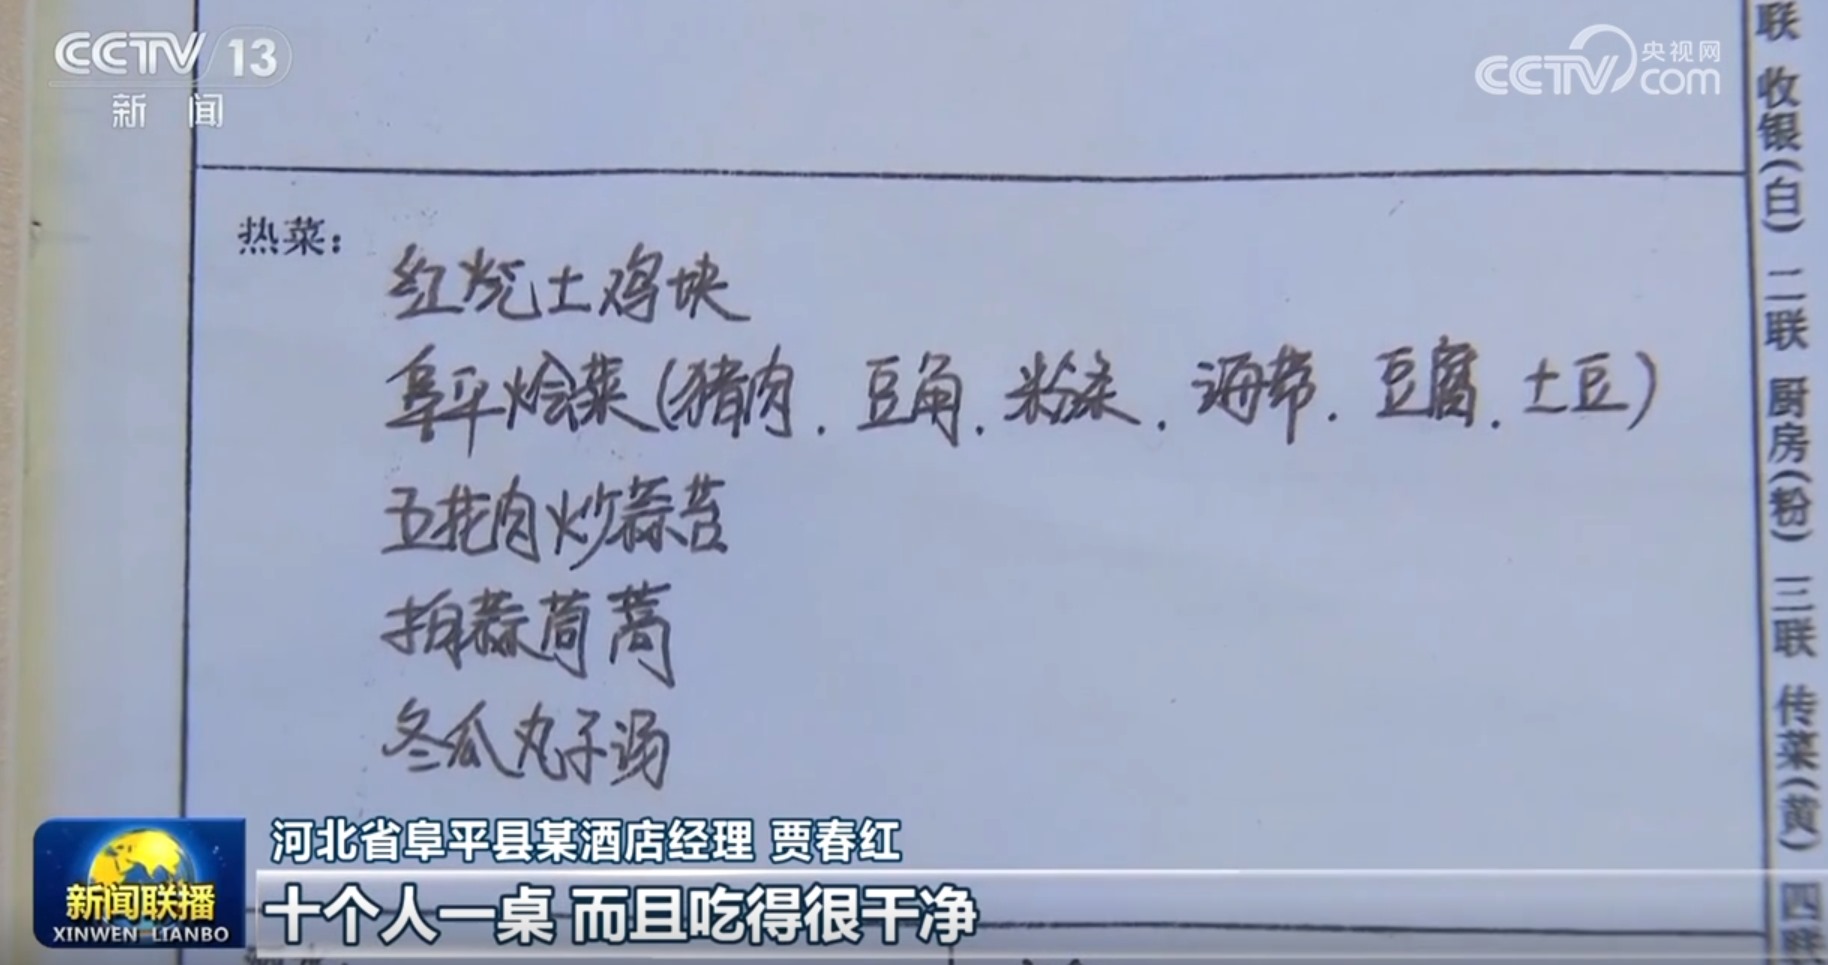 CCTV 13
新闻
央视网
CCTV com
热菜：
红烧土鸡块
阜平烩菜(猪肉.豆角.粉条.海带.豆腐.土豆)
五花肉炒蒜苔
拍蒜茼蒿
冬瓜丸子汤
联 收银(白) 二联 厨房(粉) 三联 传菜(黄) 四联
河北省阜平县某酒店经理 贾春红
十个人一桌 而且吃得很干净
新闻联播
XINWEN LIANBO